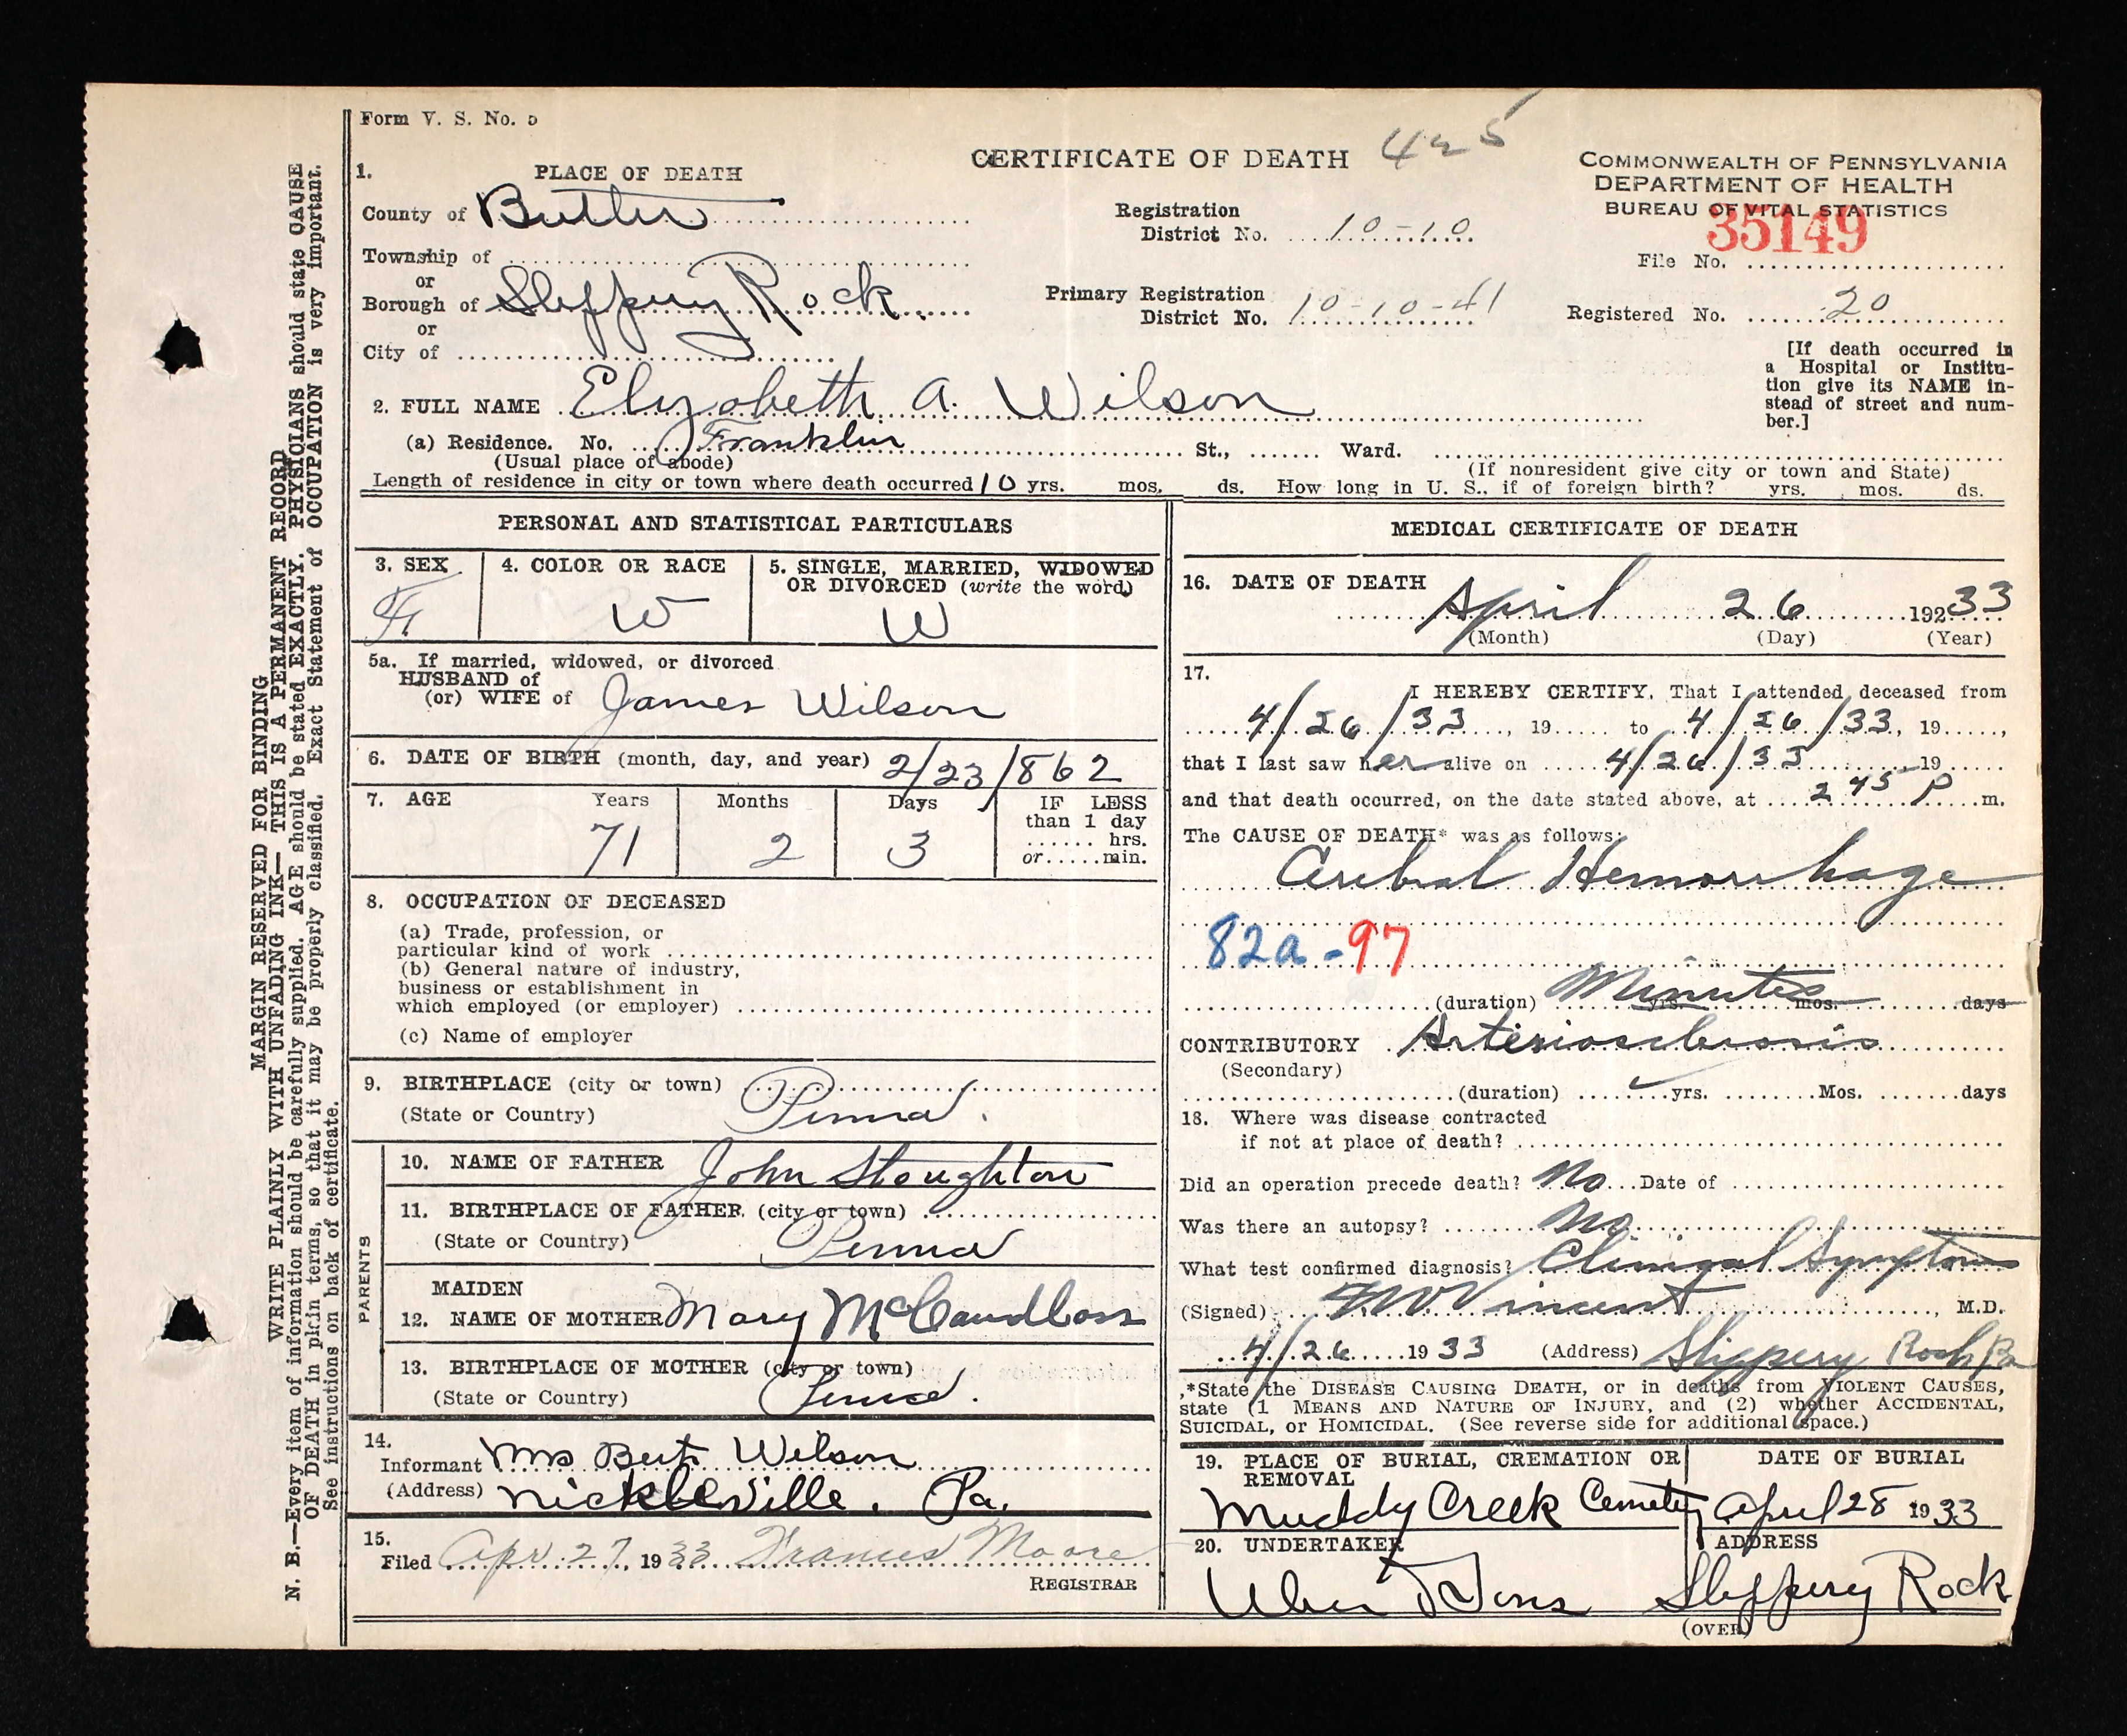 Form V. S. No. 5
CERTIFICATE OF DEATH 425
COMMONWEALTH OF PENNSYLVANIA
DEPARTMENT OF HEALTH
BUREAU OF VITAL STATISTICS
35149
File No.
1. PLACE OF DEATH
County of Butler
Registration District No. 10-10
Township of
or
Borough of Slippery Rock
Primary Registration District No. 10-10-41
Registered No. 20
or
City of
[If death occurred in
a Hospital or Institu-
tion give its NAME in-
stead of street and num-
ber.]
2. FULL NAME Elizabeth A. Wilson
(a) Residence. No. Franklin St., Ward.
(Usual place of abode) (If nonresident give city or town and State)
Length of residence in city or town where death occurred 10 yrs. mos. ds. How long in U. S., if of foreign birth? yrs. mos. ds.
PERSONAL AND STATISTICAL PARTICULARS
3. SEX
F
4. COLOR OR RACE
W
5. SINGLE, MARRIED, WIDOWED
OR DIVORCED (write the word)
W
5a. If married, widowed, or divorced
HUSBAND of
(or) WIFE of James Wilson
6. DATE OF BIRTH (month, day, and year) 2/23/1862
7. AGE Years Months Days IF LESS
than 1 day
hrs.
or min.
71 2 3
8. OCCUPATION OF DECEASED
(a) Trade, profession, or
particular kind of work
(b) General nature of industry,
business or establishment in
which employed (or employer)
(c) Name of employer
9. BIRTHPLACE (city or town)
(State or Country) Penna.
PARENTS
10. NAME OF FATHER John Stoughton
11. BIRTHPLACE OF FATHER (city or town)
(State or Country) Penna
MAIDEN
12. NAME OF MOTHER Mary McCandless
13. BIRTHPLACE OF MOTHER (city or town)
(State or Country) Penna.
14.
Informant Mrs Bert Wilson
(Address) Nickleville. Pa.
15.
Filed Apr. 27, 1933 Frances Moore
REGISTRAR
MEDICAL CERTIFICATE OF DEATH
16. DATE OF DEATH
April 26 19233
(Month) (Day) (Year)
17.
I HEREBY CERTIFY, That I attended deceased from
4/26/33, 19 to 4/26/33, 19,
that I last saw her alive on 4/26/33 19
and that death occurred, on the date stated above, at 2 45 P m.
The CAUSE OF DEATH* was as follows:
Cerebral Hemorrhage
82a-97
(duration) Minutes yrs. mos. days
CONTRIBUTORY Arteriosclerosis
(Secondary)
(duration) yrs. Mos. days
18. Where was disease contracted
if not at place of death?
Did an operation precede death? No Date of
Was there an autopsy? No
What test confirmed diagnosis? Clinical Symptoms
(Signed) Vincent, M.D.
4/26 1933 (Address) Slippery Rock Pa
*State the DISEASE CAUSING DEATH, or in deaths from VIOLENT CAUSES,
state (1 MEANS AND NATURE OF INJURY, and (2) whether ACCIDENTAL,
SUICIDAL, or HOMICIDAL. (See reverse side for additional space.)
19. PLACE OF BURIAL, CREMATION OR
REMOVAL
Muddy Creek Cemetery
DATE OF BURIAL
April 28 1933
20. UNDERTAKER
Uber & Sons
ADDRESS
Slippery Rock
(OVER)
MARGIN RESERVED FOR BINDING
WRITE PLAINLY WITH UNFADING INK—THIS IS A PERMANENT RECORD
N. B.—Every item of information should be carefully supplied. AGE should be stated EXACTLY. PHYSICIANS should state CAUSE
OF DEATH in plain terms, so that it may be properly classified. Exact Statement of OCCUPATION is very important.
See instructions on back of certificate.